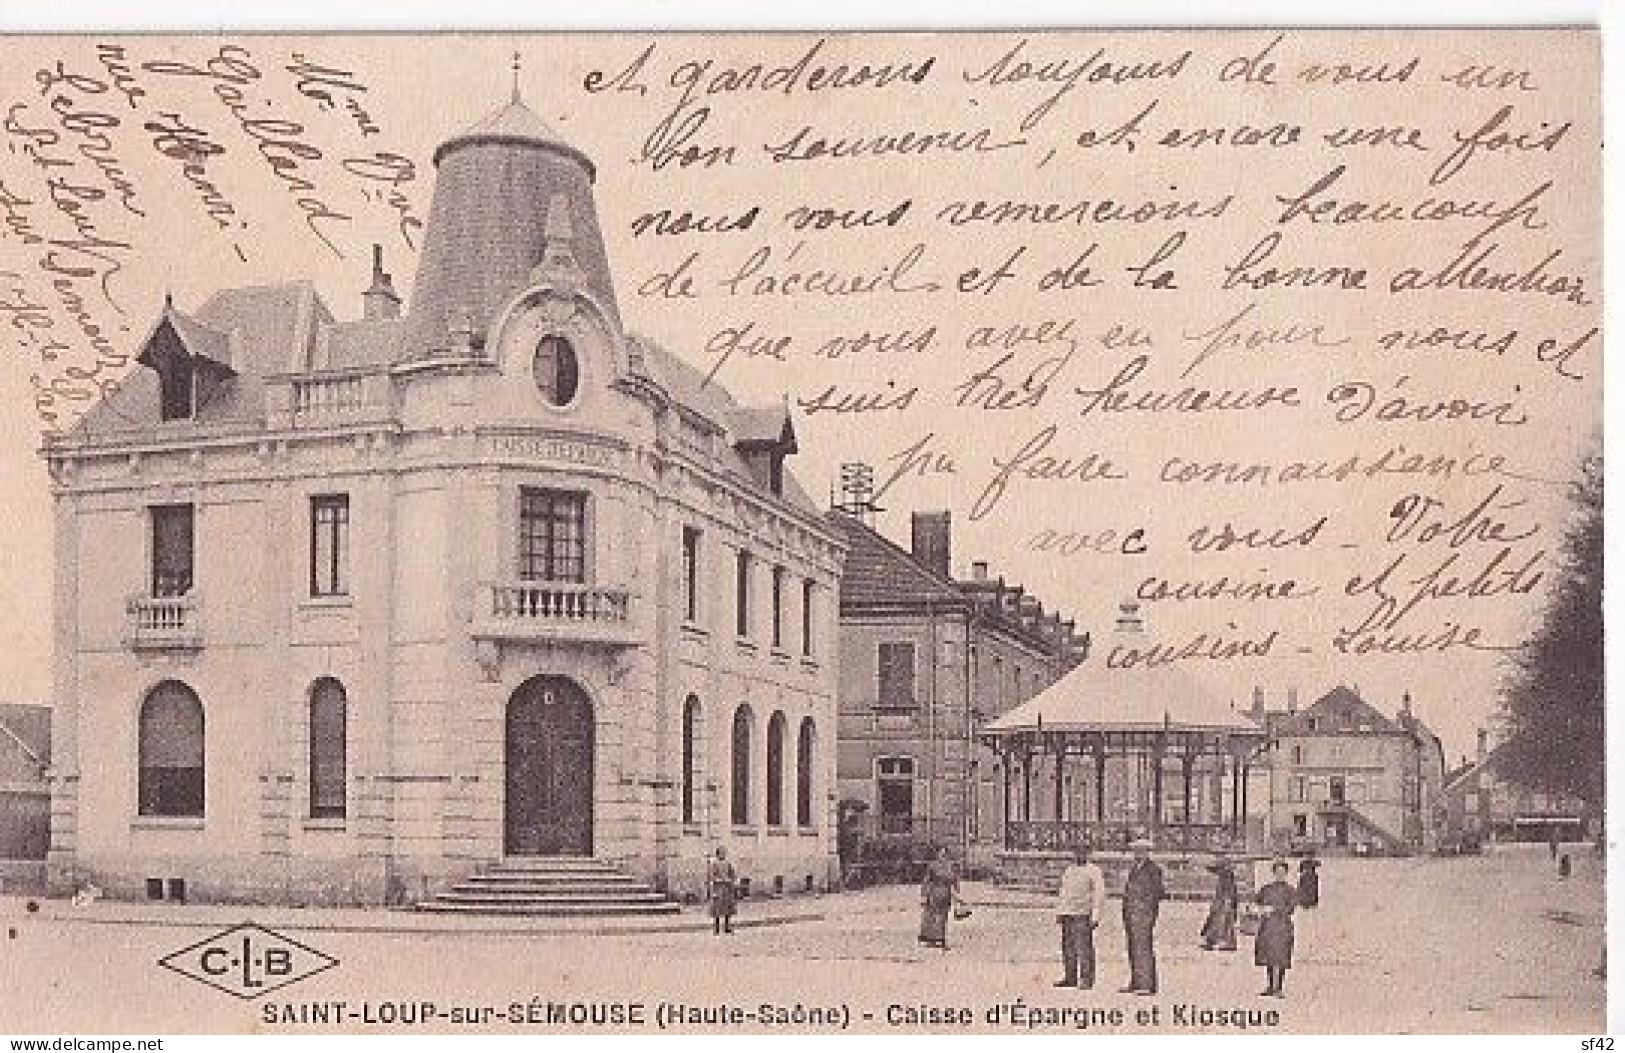 Mme Vve
Gaillard
rue Henri-
Lebrun
St Loup
sur Semouze
Hte
et garderons toujours de vous un
bon souvenir, et encore une fois
nous vous remercions beaucoup
de l'accueil et de la bonne attention
que vous avez eu pour nous et
suis très heureuse d'avoir
pu faire connaissance
avec vous - Votre
cousine et petits
cousins - Louise
CAISSE D'EPARGNE
C·L·B
SAINT-LOUP-sur-SÉMOUSE (Haute-Saône) - Caisse d'Épargne et Kiosque
www.delcampe.net
sf42